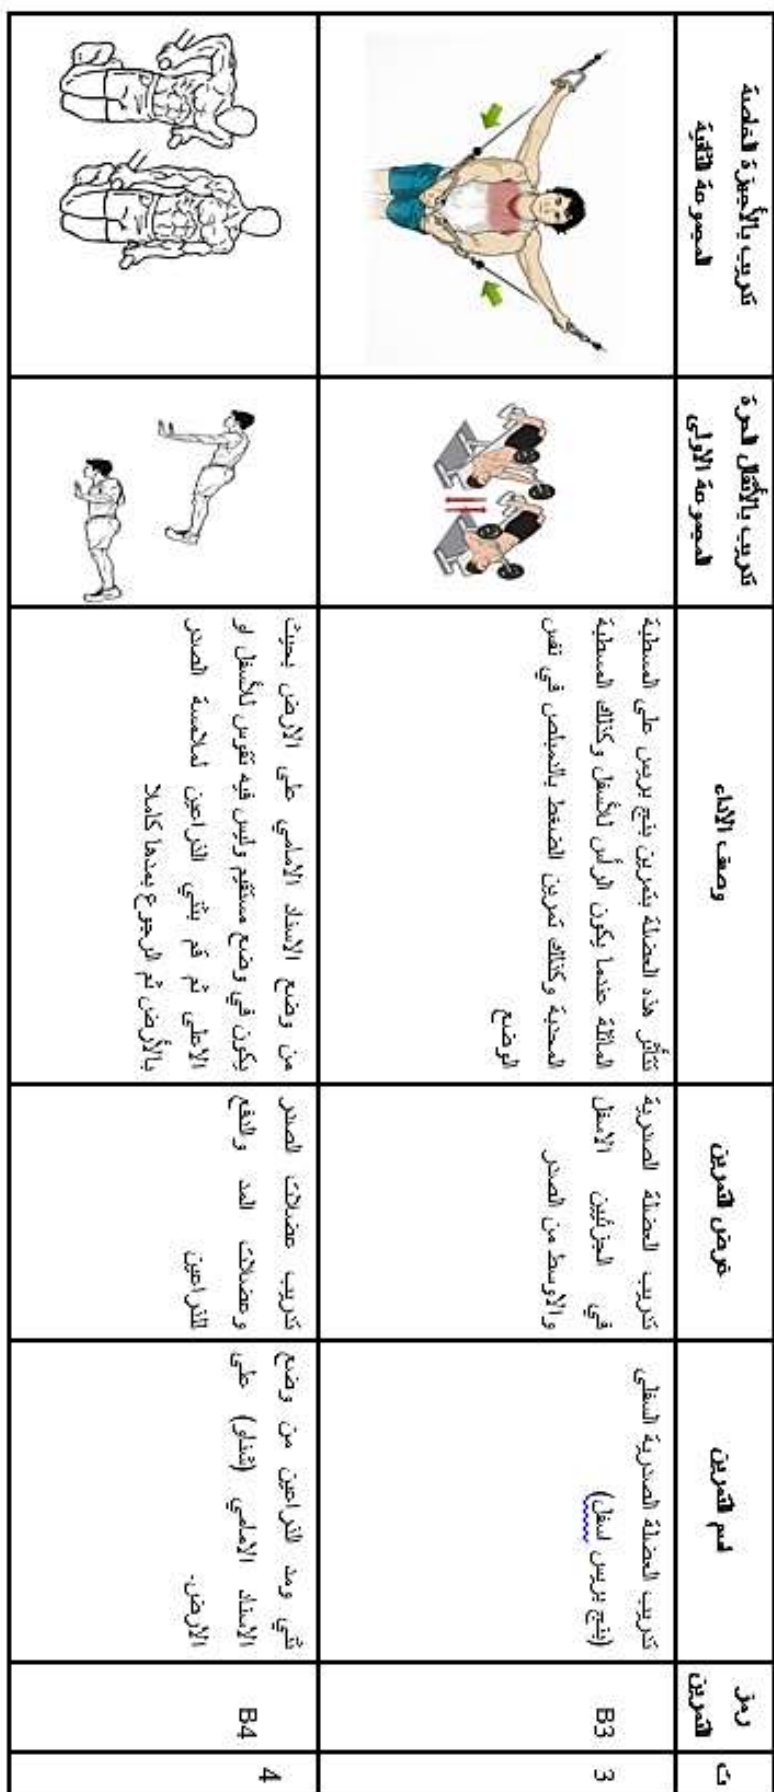 ت
رمز
التمرين
اسم التمرين
غرض التمرين
وصف الاداء
تدريب بالأثقال الحرة
المجموعة الاولى
تدريب بالأجهزة الخاصة
المجموعة الثانية
3
B3
تدريب العضلة الصدرية السفلى
(بنج بريس اسفل)
تدريب العضلة الصدرية
في الجزئيين الاسفل
والاوسط من الصدر
تتأثر هذه العضلة بتمرين بنج بريس على المسطبة
المائلة عندما يكون الرأس للأسفل وكذلك المسطبة
المحدبة وكذلك تمرين الضغط بالدمبلص في نفس
الوضع
4
B4
ثني ومد الذراعين من وضع
الاسناد الامامي (شناو) على
الارض.
تدريب عضلات الصدر
وعضلات المد والدفع
للذراعين
من وضع الاسناد الامامي على الارض بحيث
يكون في وضع مستقيم وليس فيه تقوس للأسفل او
الاعلى ثم قم بثني الذراعين لملامسة الصدر
بالأرض ثم الرجوع بمدها كاملا